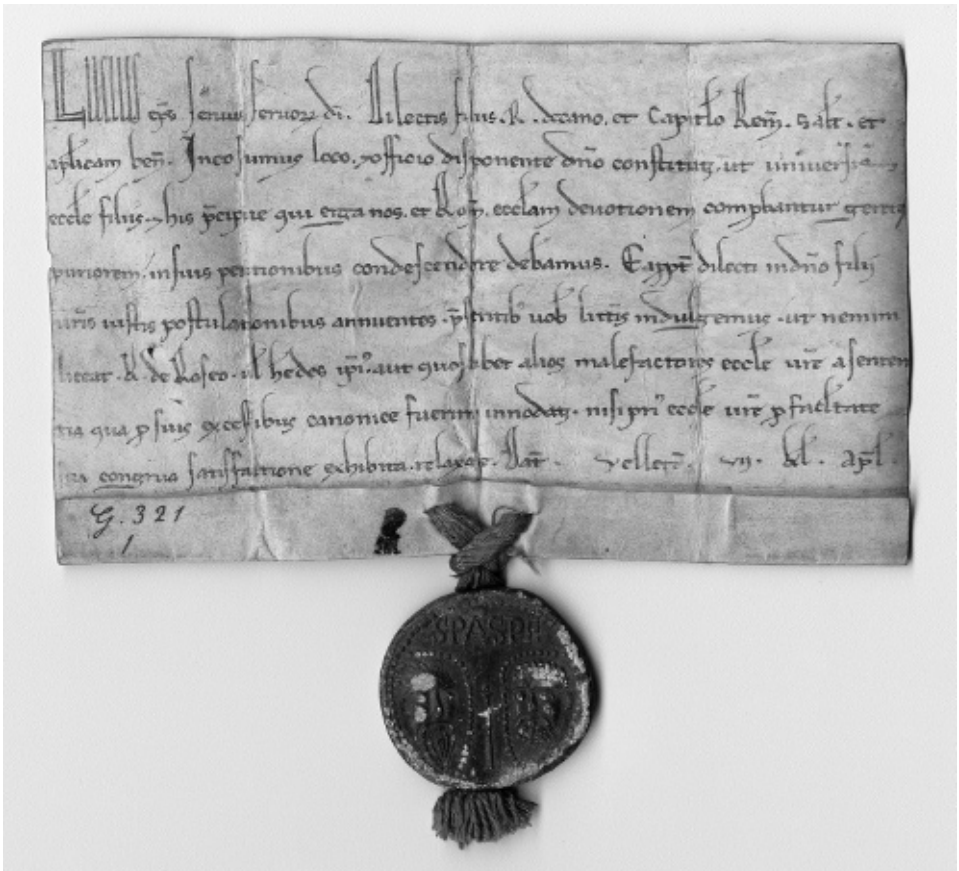 LUCIUS eps servus servor di. Dilectis filiis. R. decano. et Capitlo Rem. Salt. et
aplicam ben. In eo sumus loco. officio disponente dno constituti. ut universis
eccle filiis. his pcipue qui erga nos. et Rom. ecclam devotionem comphantur
puriorem. in suis petitionibus condescendere debeamus. Eappt dilecti in dno filii
vris iustis postulationibus annuentes. psentib vob littis indulgemus. ut nemini
liceat. R. de Roseo. ul hedes ipi. aut quoslibet alios malefactores eccle vre a senten
tia qua p suis excessibus canonice fuerint innodati. nisi pri eccle vre p facultate
sua congrua satisfactione exhibita. relaxare. Dat. velletr. vii. kl. apl.
G. 321
1
SPASPE